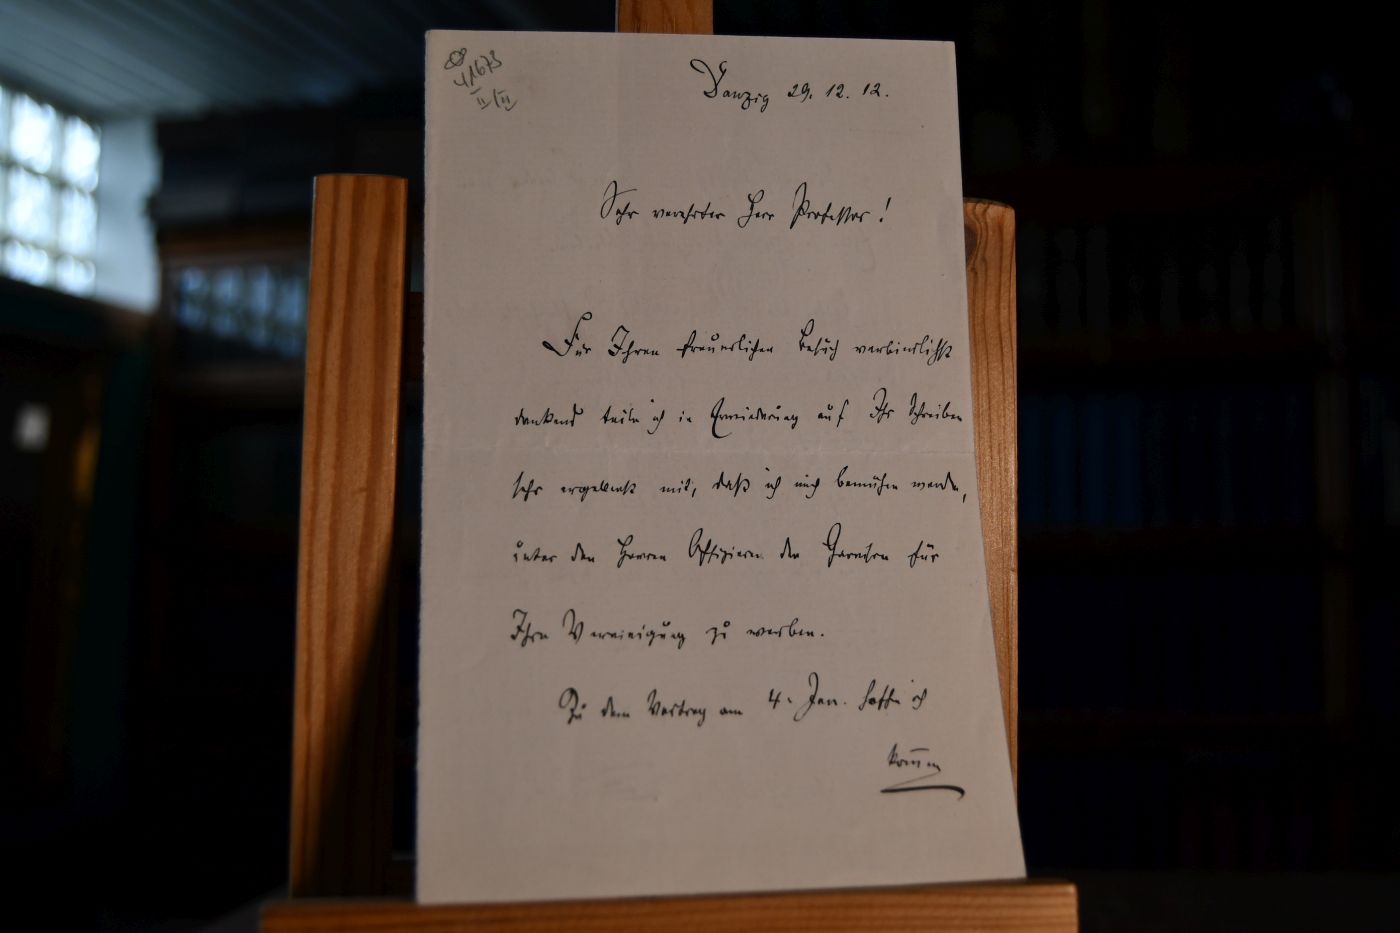 41673
II/II
Danzig 29. 12. 12.
Sehr verehrter Herr Professor!
Für Ihren freundlichen Besuch verbindlichst
dankend teile ich in Erwiederung auf Ihr Schreiben
sehr ergebenst mit, daß ich mich bemühen werde,
unter den Herren Offizieren der Garnison für
Ihre Vereinigung zu werben.
Zu dem Vortrag am 4. Jan. hoffe ich
kom̅en